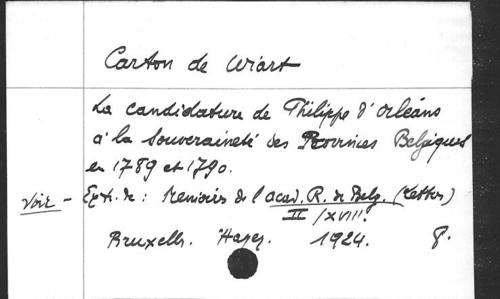 Carton de Wiart
La candidature de Philippe d'Orléans
à la Souveraineté des Provinces Belgiques
en 1789 et 1790.
Voir - Extr. de : Memoires de l'acad. R. de Belg. (Lettres)
II /XVIII.
Bruxelles. Hayez. 1924. 8.